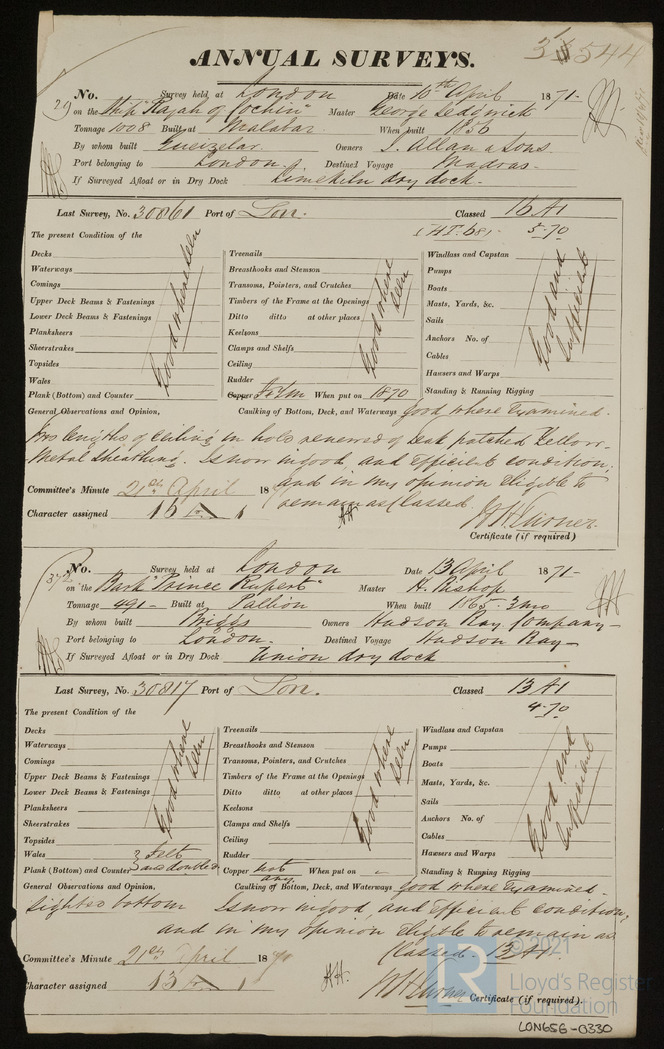 ANNUAL SURVEYS.
544
29
No. Survey held at London Date 10th April 1871-
on the Ship "Rajah of Cochin" Master George Sedgwick
Tonnage 1008 Built at Malabar When built 1856
By whom built Owners J. Allan & Sons
Port belonging to London Destined Voyage Madras-
If Surveyed Afloat or in Dry Dock Limekiln dry dock-
Last Survey, No. 30861 Port of Lon. Classed 15 A1
5-70
The present Condition of the
Decks
Waterways
Comings
Upper Deck Beams & Fastenings
Lower Deck Beams & Fastenings
Planksheers
Sheerstrakes
Topsides
Wales
Plank (Bottom) and Counter
Good where seen
Treenails
Breasthooks and Stemson
Transoms, Pointers, and Crutches
Timbers of the Frame at the Openings
Ditto ditto at other places
Keelsons
Clamps and Shelfs
Ceiling
Rudder
Copper When put on 1870
Good where seen
Windlass and Capstan
Pumps
Boats
Masts, Yards, &c.
Sails
Anchors No. of
Cables
Hawsers and Warps
Standing & Running Rigging
Good and sufficient
General Observations and Opinion, Caulking of Bottom, Deck, and Waterways good where Examined-
lengths of Ceiling in hold renewed & leak patched Yellow-
Metal Sheathing. Is now in good and efficient condition,
and in my opinion Eligible to
Committee's Minute 21st April 18
remain as Classed
Character assigned 15 A 1
Certificate (if required)
372
No. Survey held at London Date 13 April 1871-
on the Bark "Prince Rupert" Master H. Bishop
Tonnage 491- Built at Pallion When built 1865- 3mo
By whom built Briggs Owners Hudson Bay Company-
Port belonging to London- Destined Voyage Hudson Bay-
If Surveyed Afloat or in Dry Dock Union dry dock
Last Survey, No. 30817 Port of Lon. Classed 13 A1
4-70
The present Condition of the
Decks
Waterways
Comings
Upper Deck Beams & Fastenings
Lower Deck Beams & Fastenings
Planksheers
Sheerstrakes
Topsides
Wales
Plank (Bottom) and Counter
Felt and doubled
Good where seen
Treenails
Breasthooks and Stemson
Transoms, Pointers, and Crutches
Timbers of the Frame at the Openings
Ditto ditto at other places
Keelsons
Clamps and Shelfs
Ceiling
Rudder
Copper not any When put on -
Good where seen
Windlass and Capstan
Pumps
Boats
Masts, Yards, &c.
Sails
Anchors No. of
Cables
Hawsers and Warps
Standing & Running Rigging
Good and sufficient
General Observations and Opinion, Caulking of Bottom, Deck, and Waterways good where Examined-
Sighted bottom Is now in good and efficient condition,
and in my opinion Eligible to remain as
Committee's Minute 21st April 18
Classed- 13 A1
Character assigned 13 A 1
Certificate (if required).
© 2021
LR
Lloyd's Register
Foundation
LON656-0330